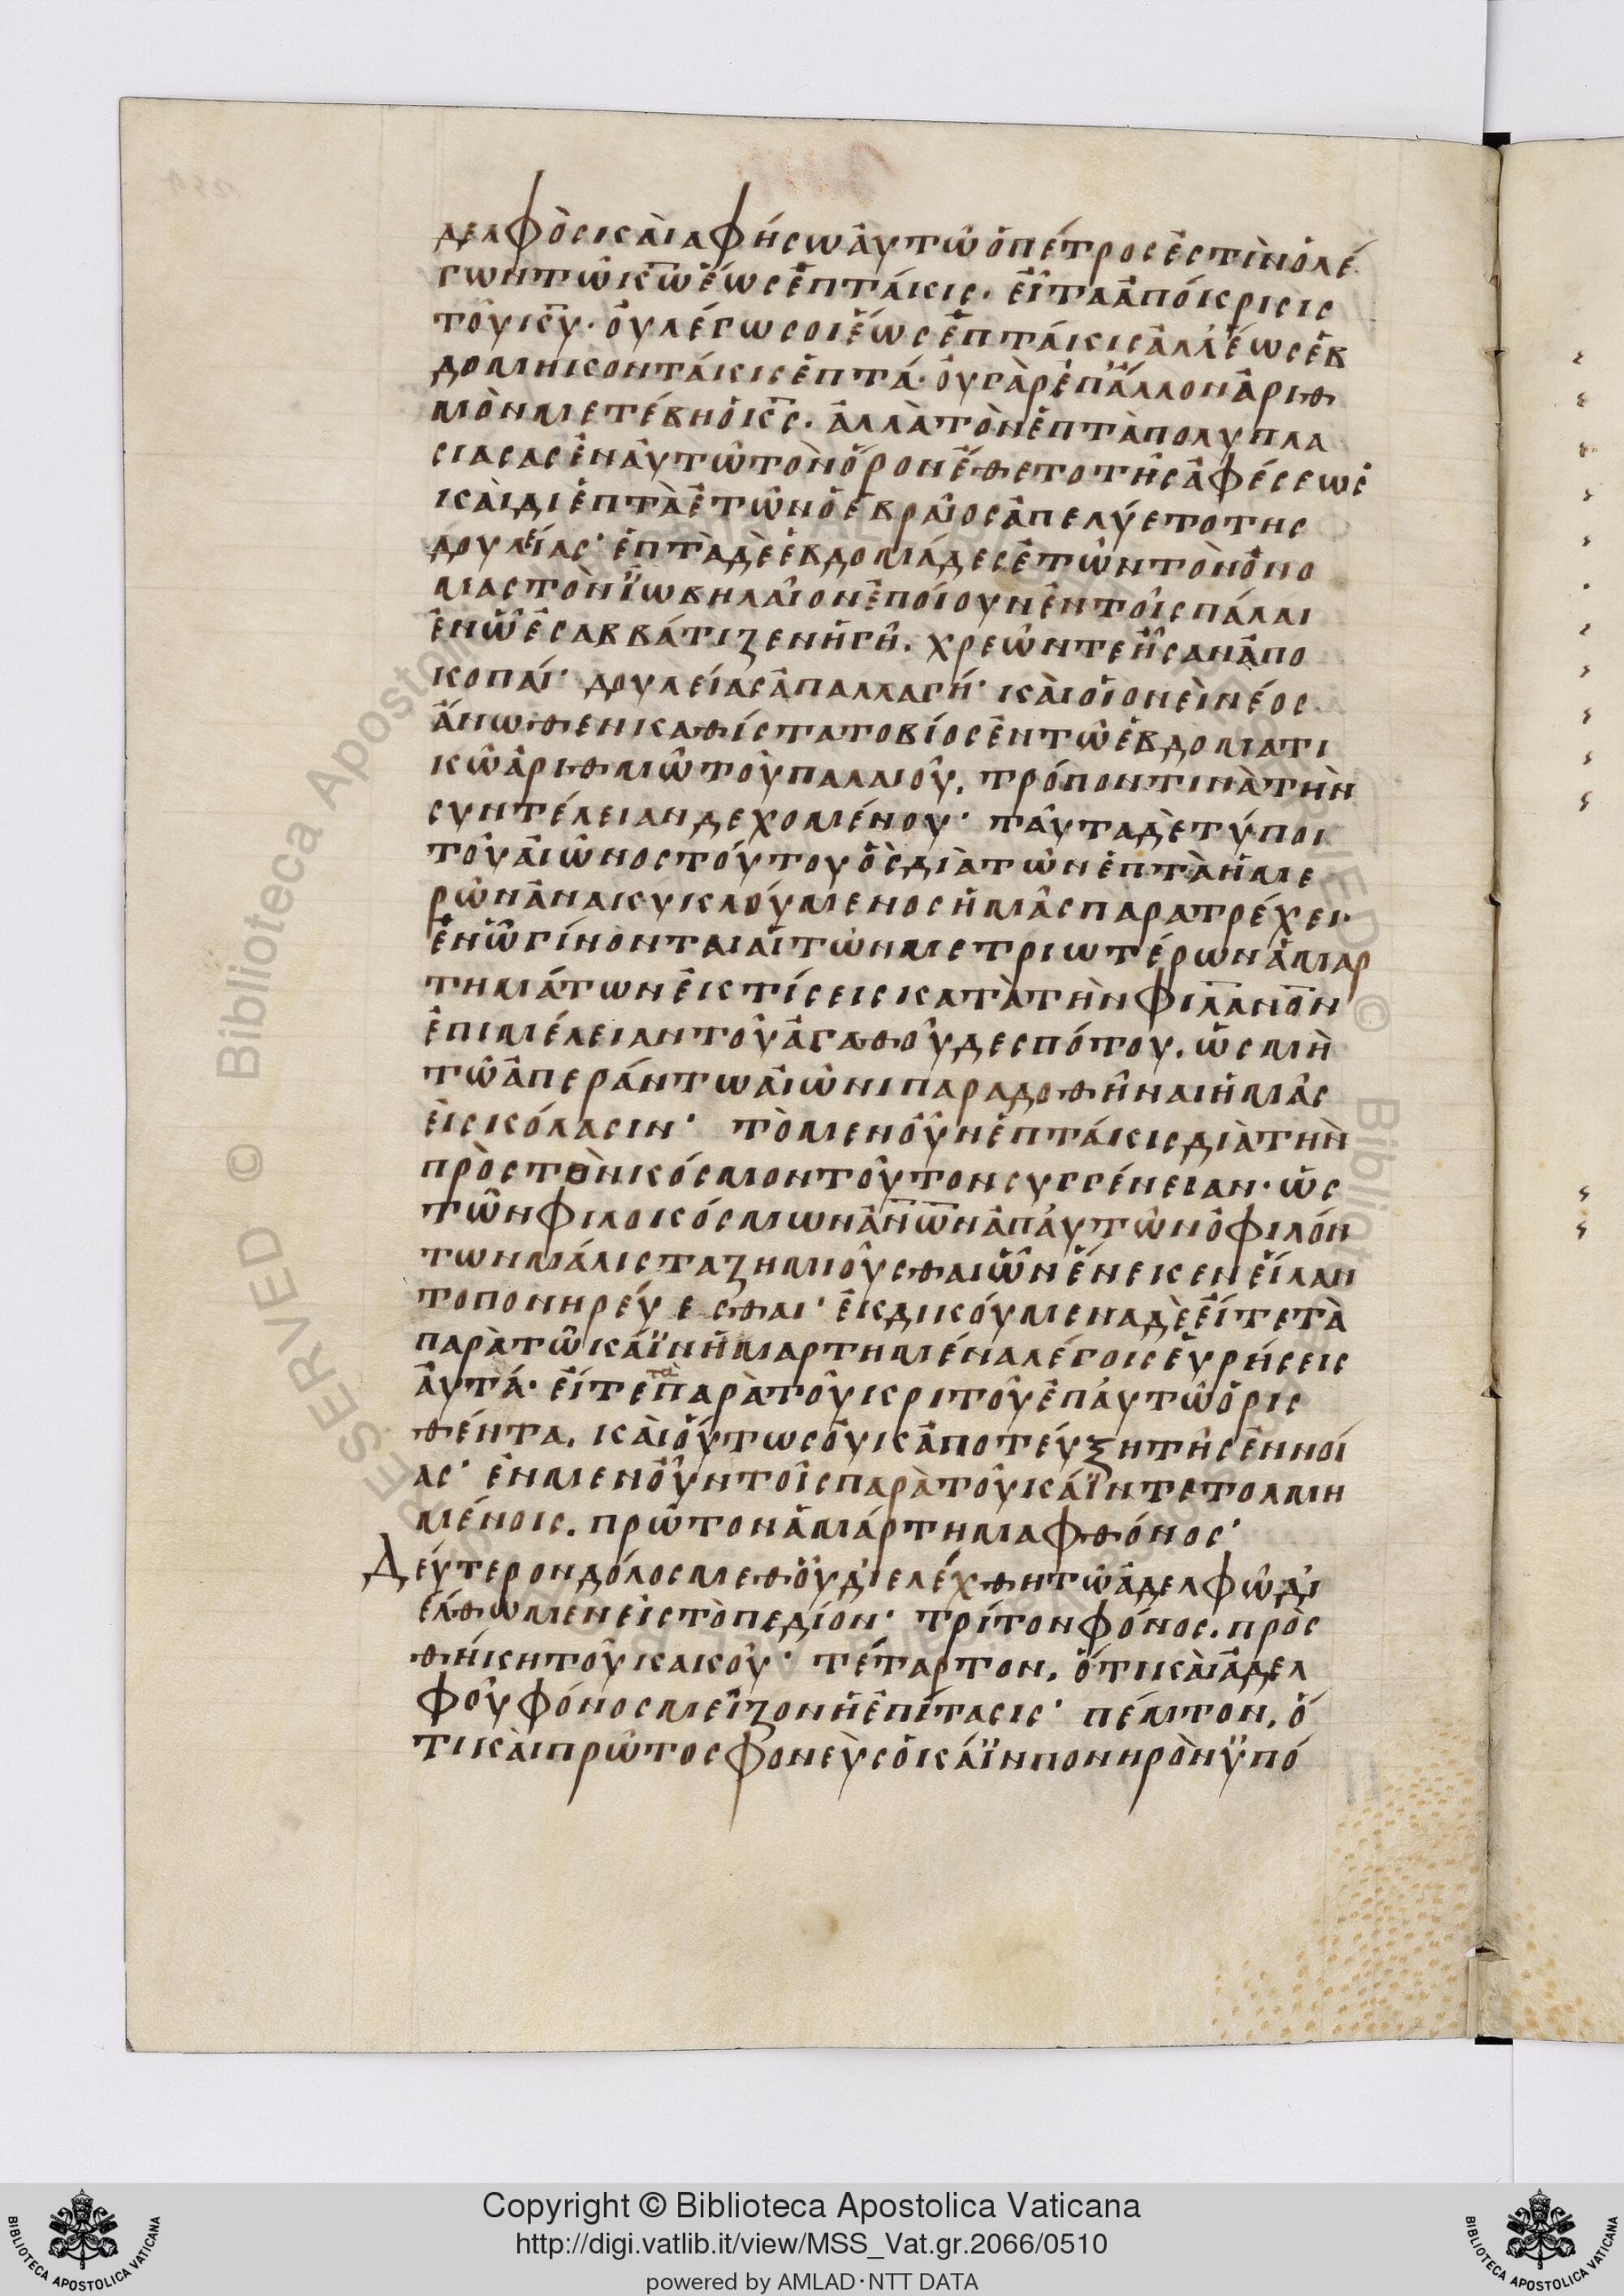 δελφὸς καὶ ἀφήσω αὐτῶ ὁ πέτρος ἐστὶν ὁ λέ
γων τῶ κ̅ω̅ ἕως ἑπτάκις. εἶτα ἀπόκρισις
τοῦ κ̅υ̅· οὐ λέγω σοι ἕως ἑπτάκις ἀλλ' ἕως ἑβ
δομηκοντάκις ἑπτά· οὐ γὰρ ἐπ' ἄλλον ἀριθ
μὸν μετέβη ὁ κ̅ς̅. ἀλλὰ τὸν ἑπτὰ πολυπλα
σιάσας ἐν αὐτῶ τὸν ὅρον ἔθετο τῆς ἀφέσεως
καὶ δι ἑπτὰ ἐτῶν ὁ ἑβραῖος ἀπελύετο της
δουλείας· ἑπτὰ δὲ ἑβδομάδες ἐτῶν τὸν ὀνο
μαστὸν ϊωβηλαῖον ἐποίουν ἐν τοῖς πάλαι
ἐν ὧ ἐσαββάτιζεν ἡ γῆ. χρεῶν τε ἦσαν ἀπο
κοπαί· δουλείας ἀπαλλαγή· καὶ οἱονεὶ νέος
ἄνωθεν καθίστατο βίος ἐν τῶ ἑβδοματι
κῶ ἀριθμῶ τοῦ παλαιοῦ, τρόπον τινὰ τὴν
συντέλειαν δεχομένου· ταῦτα δὲ τύποι
τοῦ αἰῶνος τούτου ὃς διὰ τῶν ἑπτὰ ἡμε
ρῶν ἀνακυκλούμενος ἡμᾶς παρατρέχει·
ἐν ὧ γίνονται αἱ τῶν μετριωτέρων ἁμαρ
τημάτων ἐκτίσεις κατὰ τὴν φιλ̅αν̅ο̅ν
ἐπιμέλειαν τοῦ ἀγαθοῦ δεσπότου. ὡς μὴ
τῶ ἀπεράντω αἰῶνι παραδοθῆναι ἡμᾶς
εἰς κόλασιν· τὸ μεν οὖν ἑπτάκις διὰ τὴν
πρὸς τὸν κόσμον τοῦτον συγγένειαν· ὡς
τῶν φιλοκόσμων ἀ̅ν̅ω̅ν ἀπ' αὐτῶν ὀφιλόν
των μάλιστα ζημιοῦσθαι ὧν ἕνεκεν εἵλαν
το πονηρεύεσθαι· ἐκδικούμενα δὲ εἴτε τὰ
παρὰ τῶ κάϊν ἡμαρτημένα λέγοις εὑρήσεις
αὐτά· εἴτε τὰ παρὰ τοῦ κριτοῦ ἐπ' αὐτῶ ὁρισ
θέντα, καὶ οὕτως οὐκ ἀποτεύξη τῆς ἐννοί
ας· ἐν μεν οὖν τοῖς παρὰ τοῦ κάϊν τετολμη
μένοις. πρῶτον ἁμάρτημα φθόνος·
Δεύτερον δόλος μεθ' οὗ διελέχθη τῶ ἀδελφῶ δι
έλθωμεν εἰς τὸ πεδίον· τρίτον φόνος. προσ
θήκη τοῦ κακοῦ· τέταρτον, ὅτι καὶ ἀδελ
φοῦ φόνος μεῖζον ἡ ἐπίτασις· πέμτον, ὅ
τι καὶ πρῶτος φονεὺς ὁ κάϊν πονηρὸν ϋπό
Copyright © Biblioteca Apostolica Vaticana
http://digi.vatlib.it/view/MSS_Vat.gr.2066/0510
powered by AMLAD·NTT DATA